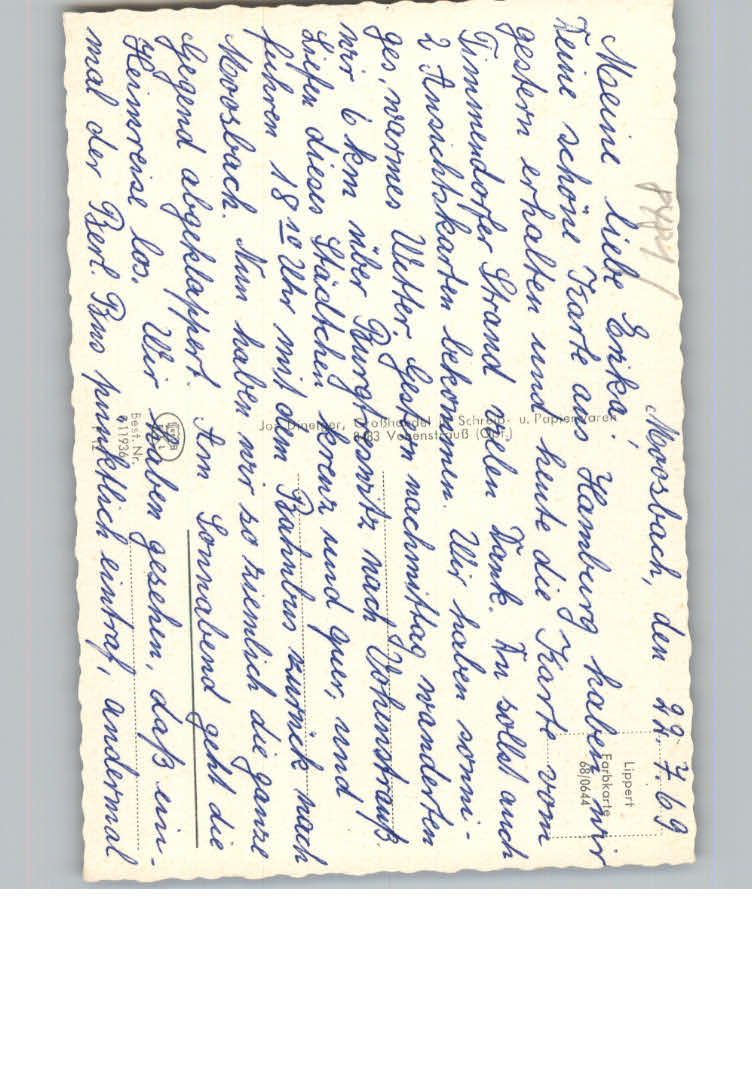 Moosbach, den 22.7.69
Meine liebe Erika,
Deine schöne Karte aus Hamburg haben wir
gestern erhalten und heute die Karte vom
Timmendorfer Strand vielen Dank. Du sollst auch
2 Ansichtskarten bekommen. Wir haben sonni-
ges, warmes Wetter. Gestern nachmittag wanderten
wir 6 km über Burgtreswitz nach Vohenstrauß
liefen dieses Städtchen kreuz und quer, und
fuhren 18 10 Uhr mit dem Bahnbus zurück nach
Moosbach. Nun haben wir so ziemlich die ganze
Gegend abgeklappert. Am Sonnabend geht die
Heimreise los. Wir haben gesehen, daß ein-
mal der Berl. Bus pünktlich eintraf, andermal
Lippert
Farbkarte
68/0644
Großhandel Schreib- u. Papierwaren
Vohenstrauß (Opf.)
Best. Nr.